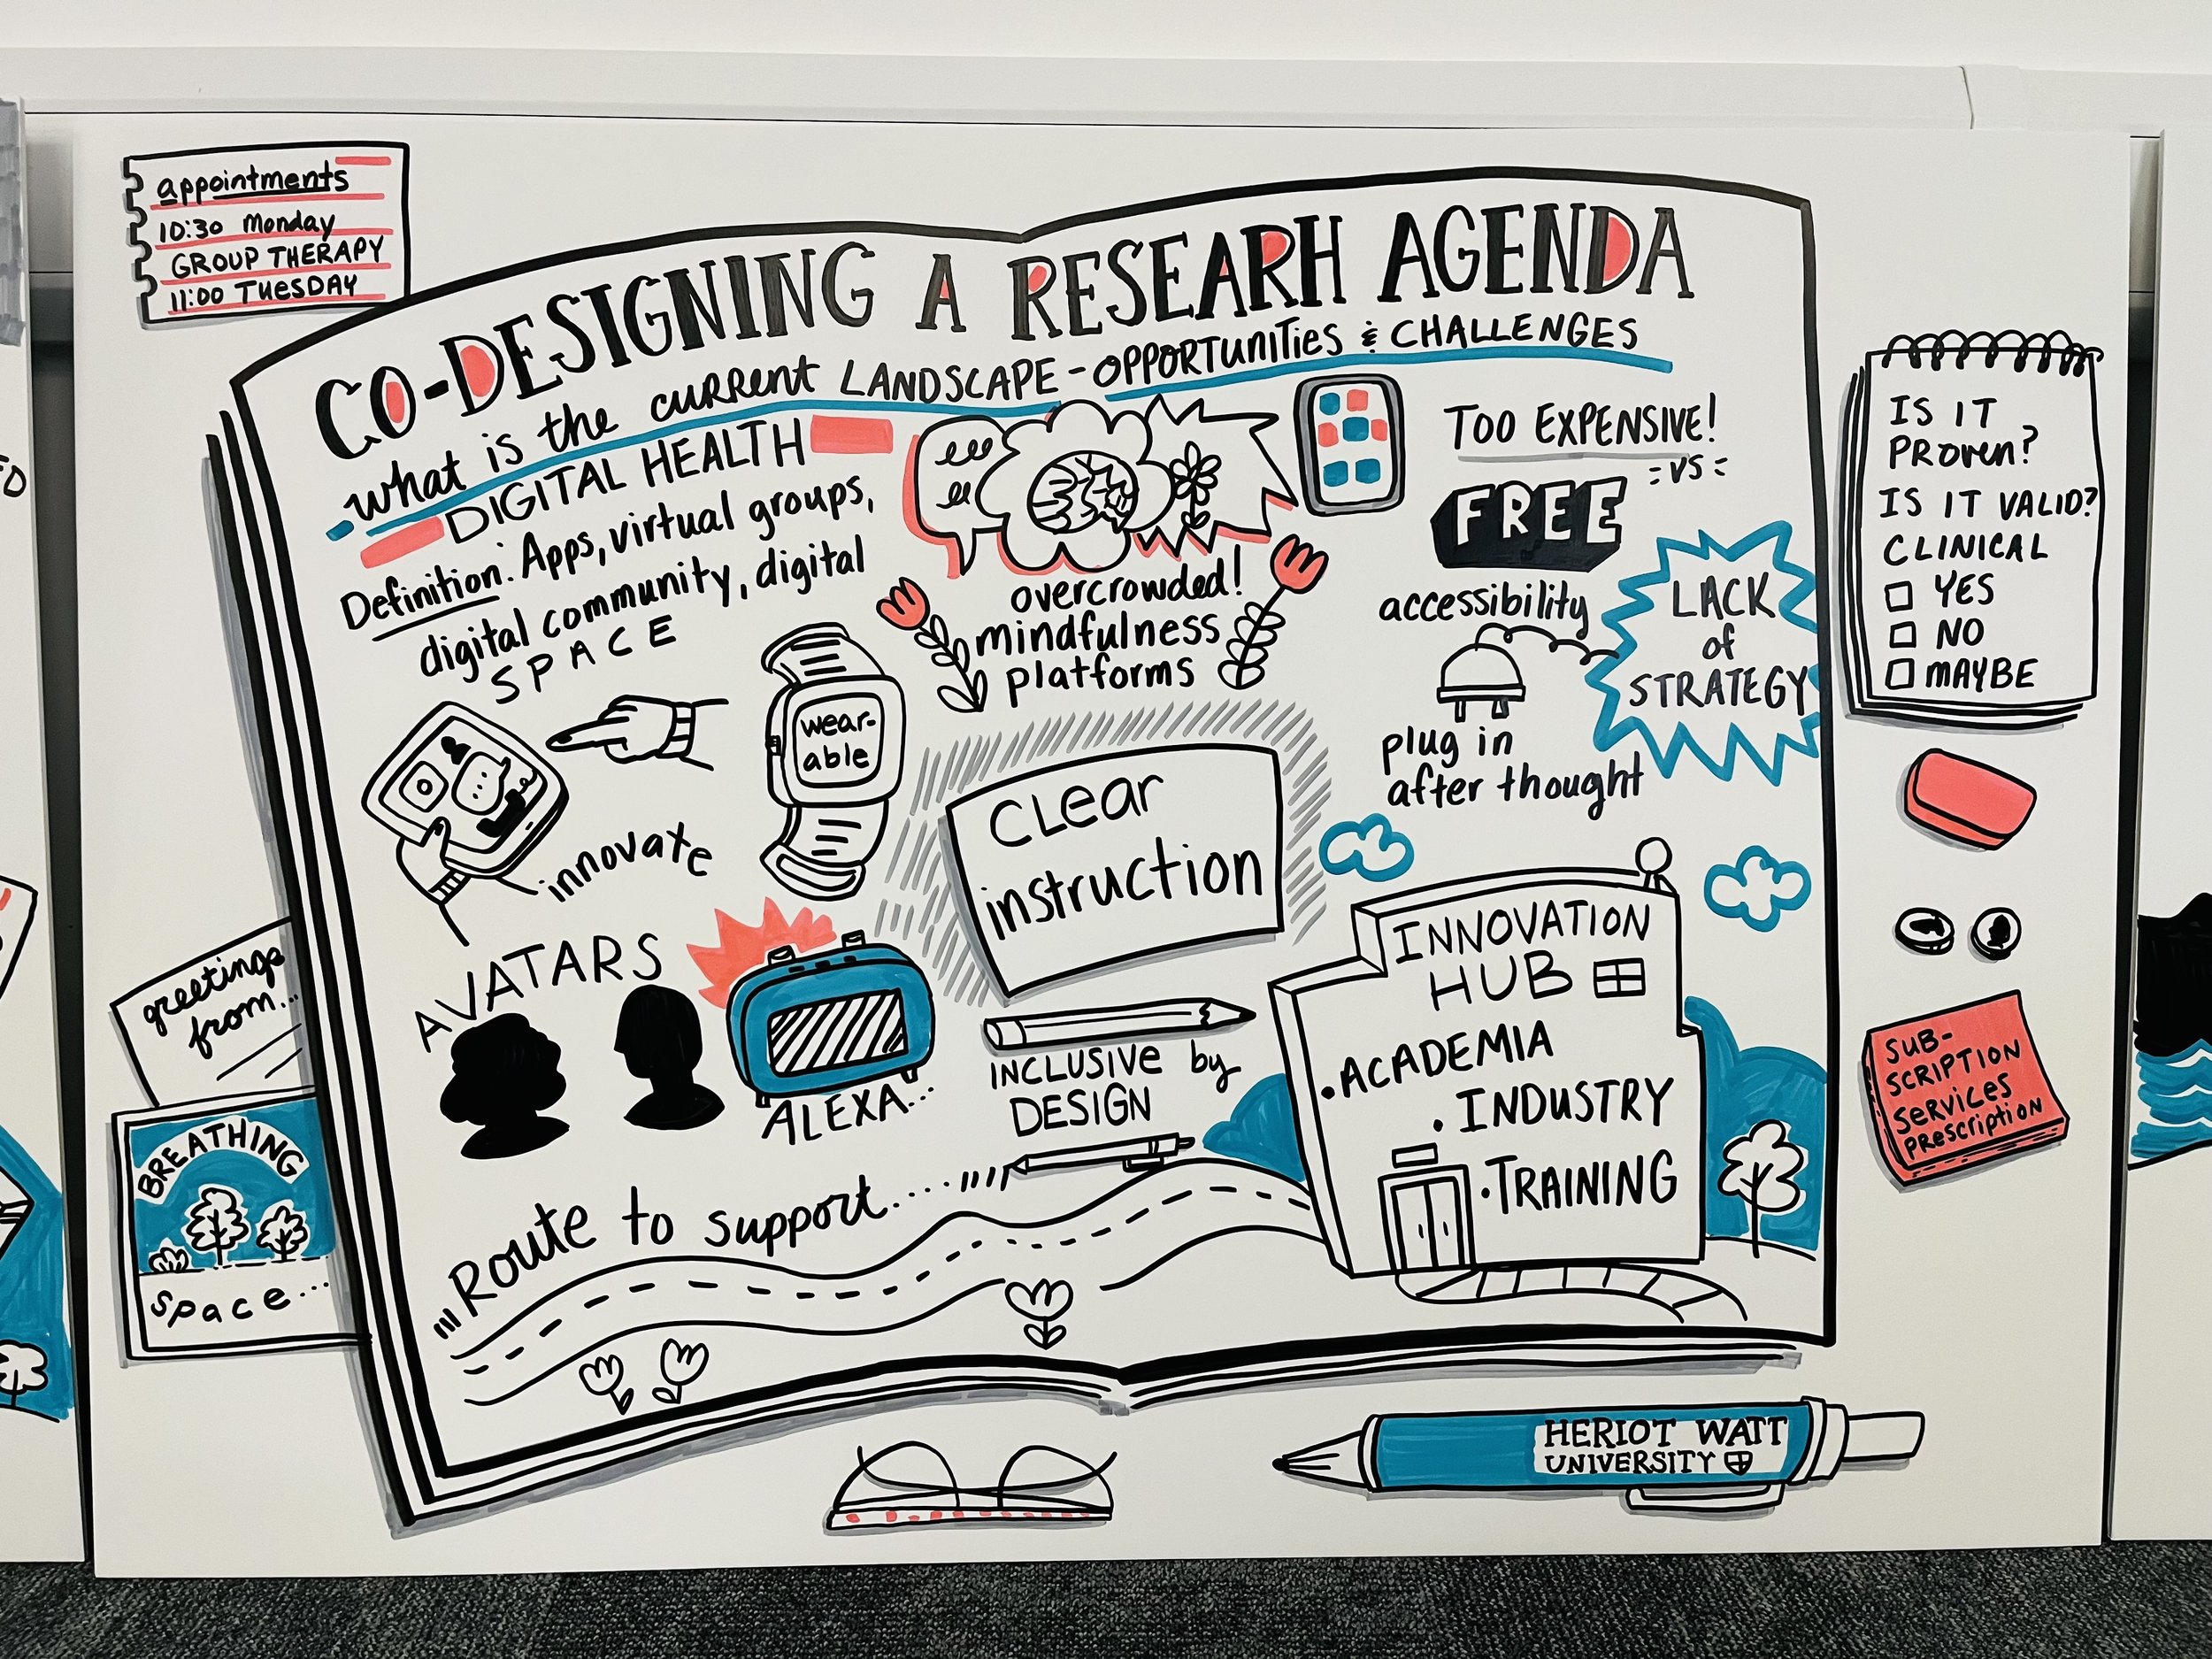 appointments
10:30 Monday
GROUP THERAPY
11:00 TUESDAY
CO-DESIGNING A RESEARH AGENDA
what is the current LANDSCAPE - OPPORTUNITIES & CHALLENGES
DIGITAL HEALTH
Definition: Apps, virtual groups,
digital community, digital
SPACE
innovate
wear-
able
overcrowded!
mindfulness
platforms
TOO EXPENSIVE!
=VS=
FREE
accessibility
plug in
after thought
LACK
of
STRATEGY
clear
instruction
AVATARS
ALEXA...
INCLUSIVE by
DESIGN
Route to support....
INNOVATION
HUB
• ACADEMIA
• INDUSTRY
• TRAINING
IS IT
PROVEN?
IS IT VALID?
CLINICAL
☐ YES
☐ NO
☐ MAYBE
SUB-
SCRIPTION
SERVICES
PRESCRIPTION
greetings
from...
BREATHING
space...
HERIOT WATT
UNIVERSITY